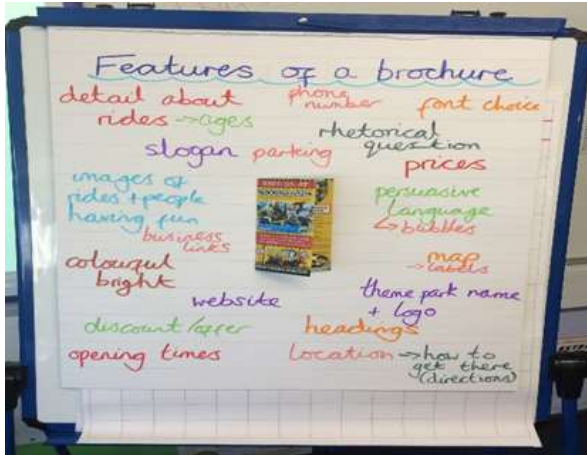 Features of a brochure
detail about
rides → ages
phone
number
font choice
rhetorical
question
slogan
parking
prices
images of
rides + people
having fun
persuasive
language
↳ bubbles
business
links
map
→ labels
colourful
bright
website
theme park name
+ logo
discount/offer
headings
opening times
location → how to
get there
(directions)